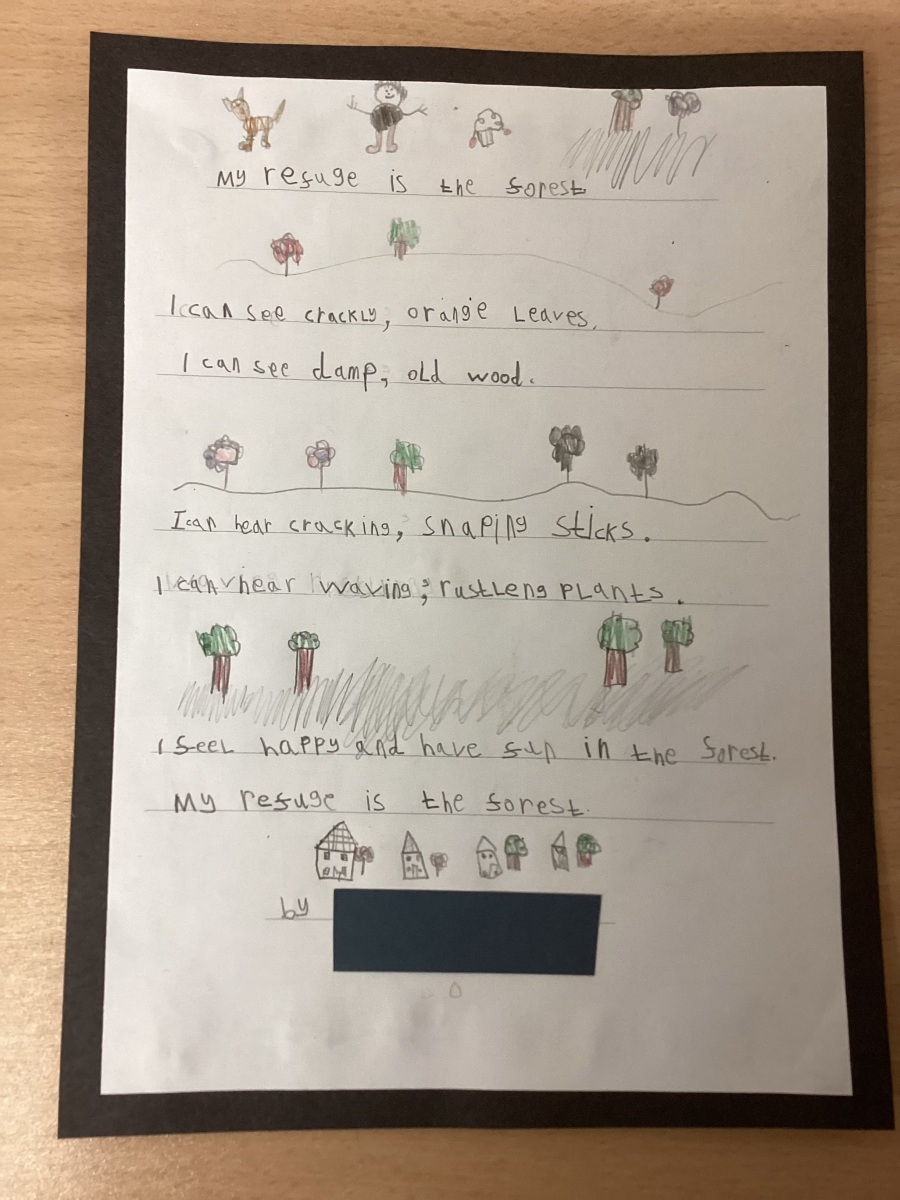 My refuge is the forest.
I can see crackly, orange Leaves.
I can see damp, old wood.
I can hear cracking, snaping sticks.
I can hear waving, rustleng plants.
I feel happy and have fun in the forest.
My refuge is the forest.
by